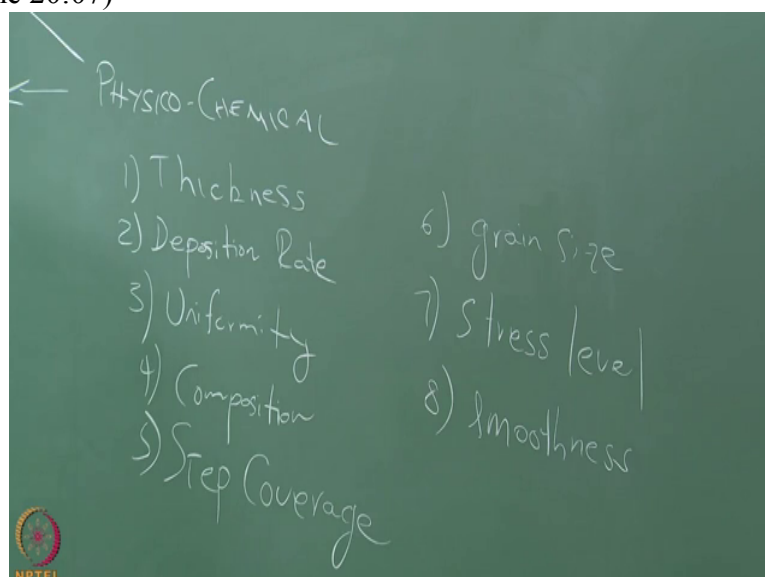 PHYSICO-CHEMICAL
1) Thickness
2) Deposition Rate
3) Uniformity
4) Composition
5) Step Coverage
6) grain Size
7) Stress level
8) Smoothness
NPTEL